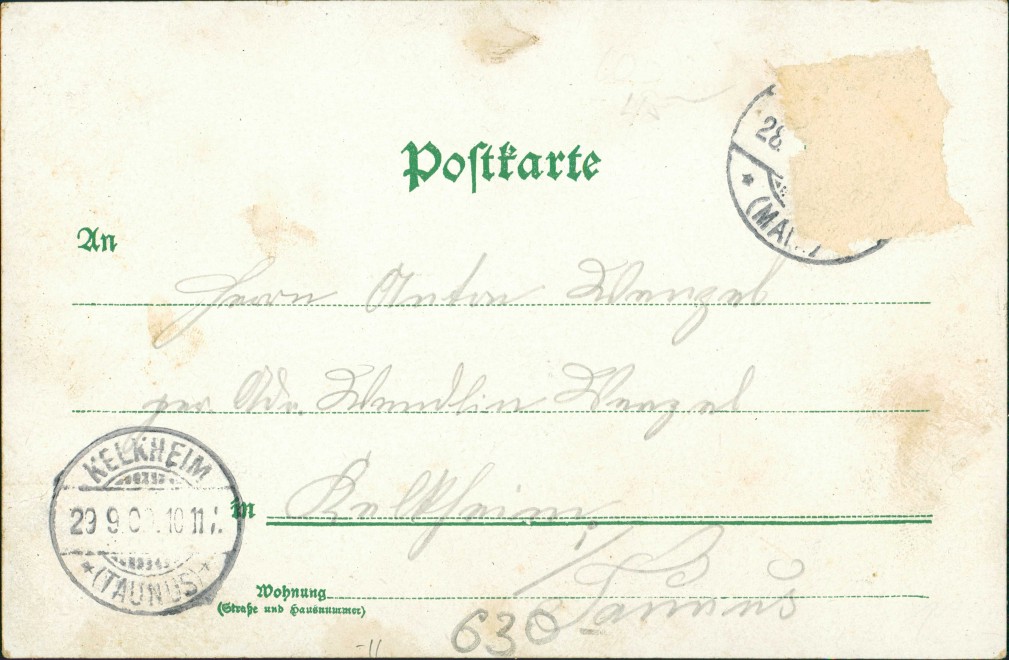 Postkarte
28.
(MAI
An
Herrn Anton Wenzel
per Adr. Wendlin Wenzel
in Kelkheim
/Taunus
KELKHEIM
29 9 0 10 11
*(TAUNUS)*
Wohnung
(Straße und Hausnummer)
630
-11